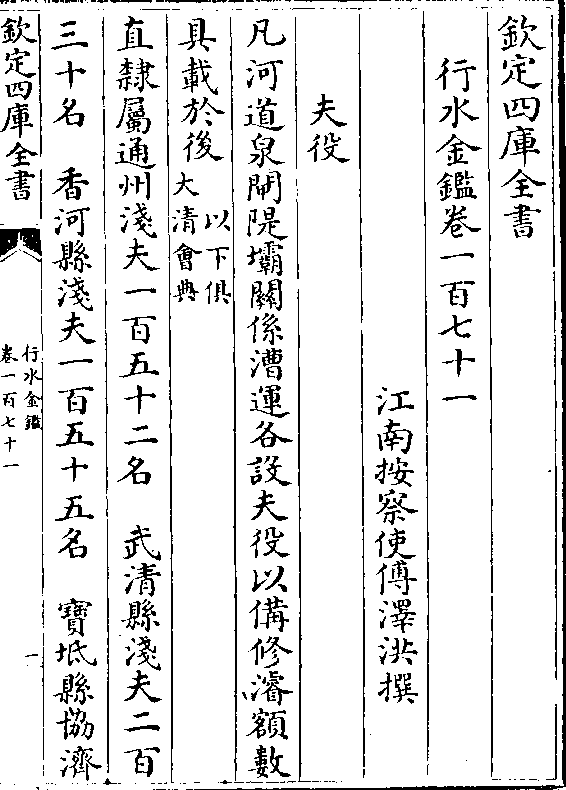 欽定四庫全書
行水金鑑卷一百七十一
江南按察使傅澤洪撰
夫役
凡河道泉閘隄壩關係漕運各設夫役以備修濬額數
具載於後以下俱
大清會典
直隸屬通州淺夫一百五十二名　武清縣淺夫二百
三十名　香河縣淺夫一百五十五名　寶坻縣協濟
欽定四庫全書
行水金鑑
卷一百七十一
一